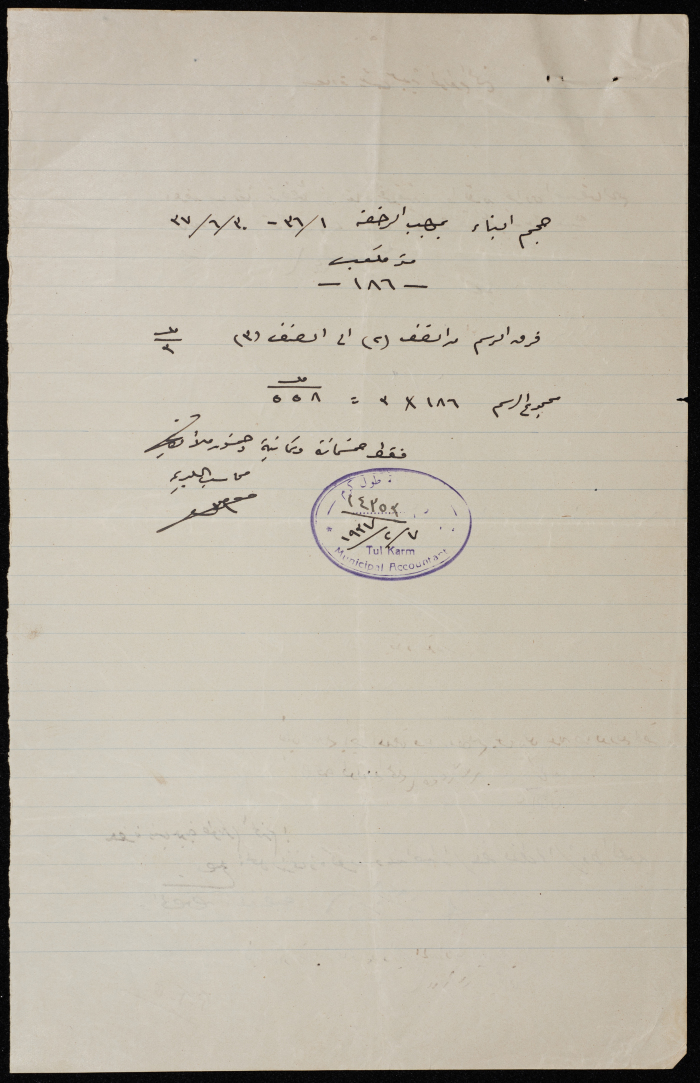 حجم البناء بموجب الرخصة ٣٦/١ - ٣٧/٦/٣٠
متر مكعب
— ١٨٦ —
فرق الرسم من الصنف (٢) الى الصنف (٣) مل ٣
مجموع الرسم ١٨٦ × ٣ = ٥٥٨ مل
فقط خمسمائة وثمانية وخمسون ملا
محاسب البلدية
طول كرم
١٤٢٥٢
١٩٣٧/٢/٧
Tul Karm
Municipal Accountant